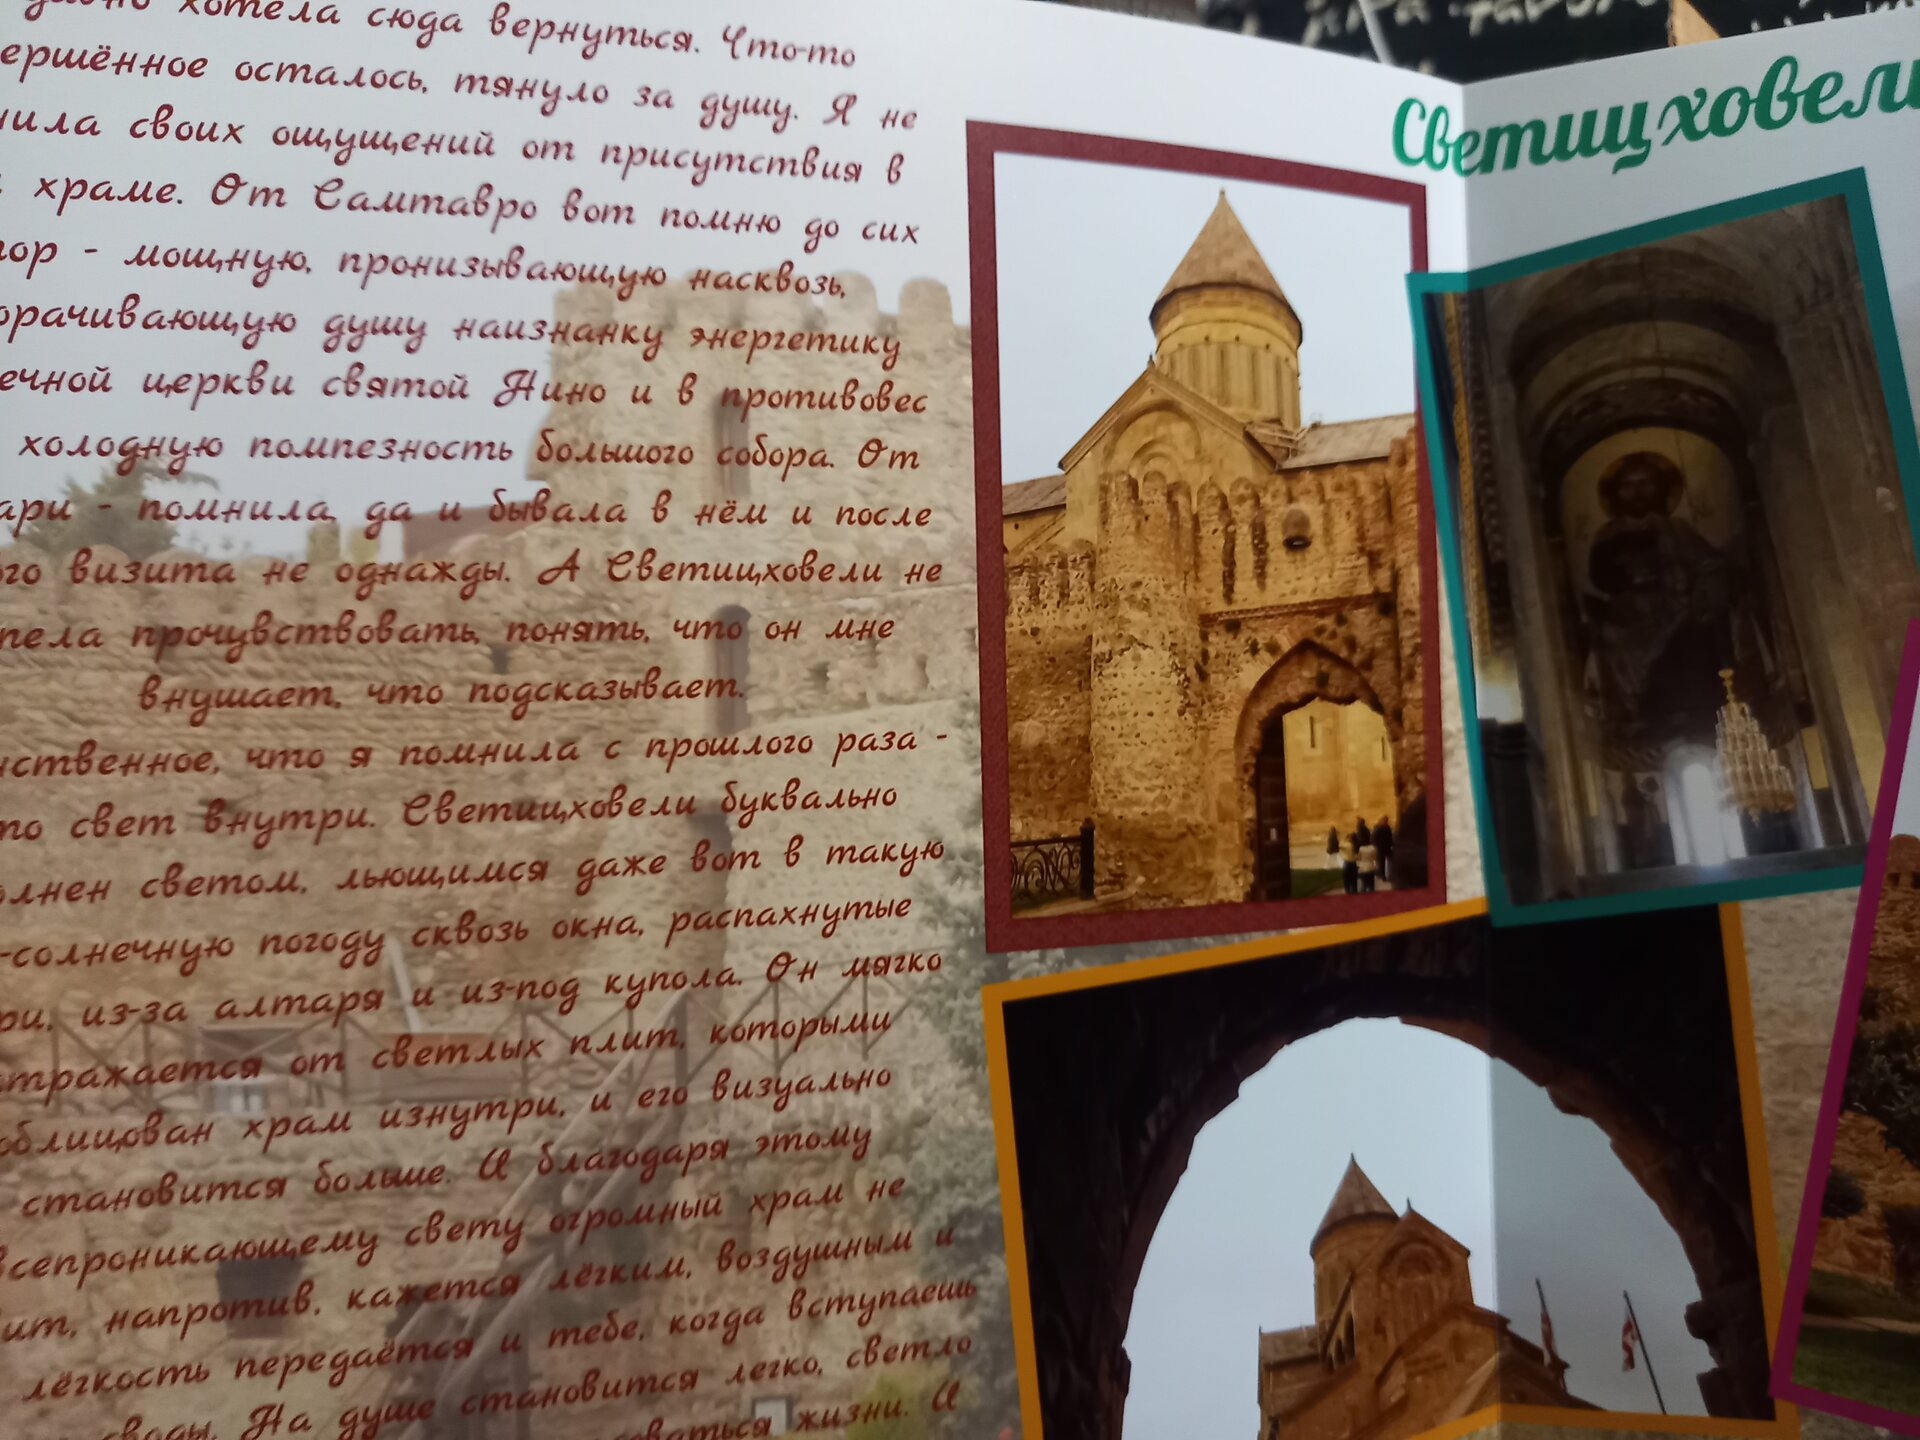 хотела сюда вернуться. Что-то
осталось, тянуло за душу. Я не
своих ощущений от присутствия в
храме. От Самтавро вот помню до сих
- мощную, пронизывающую насквозь,
душу наизнанку энергетику
церкви святой Нино и в противовес
холодную помпезность большого собора. От
- помнила, да и бывала в нём и после
визита не однажды. А Светицховели не
прочувствовать, понять, что он мне
внушает, что подсказывает.
что я помнила с прошлого раза -
свет внутри. Светицховели буквально
светом, льющимся даже вот в такую
-солнечную погоду сквозь окна, распахнутые
из-за алтаря и из-под купола. Он мягко
от светлых плит, которыми
храм изнутри, и его визуально
становится больше. И благодаря этому
всепроникающему свету огромный храм не
напротив, кажется лёгким, воздушным и
лёгкость передаётся и тебе, когда вступаешь
своды. На душе становится легко, светло
жизни. И
Светицховели